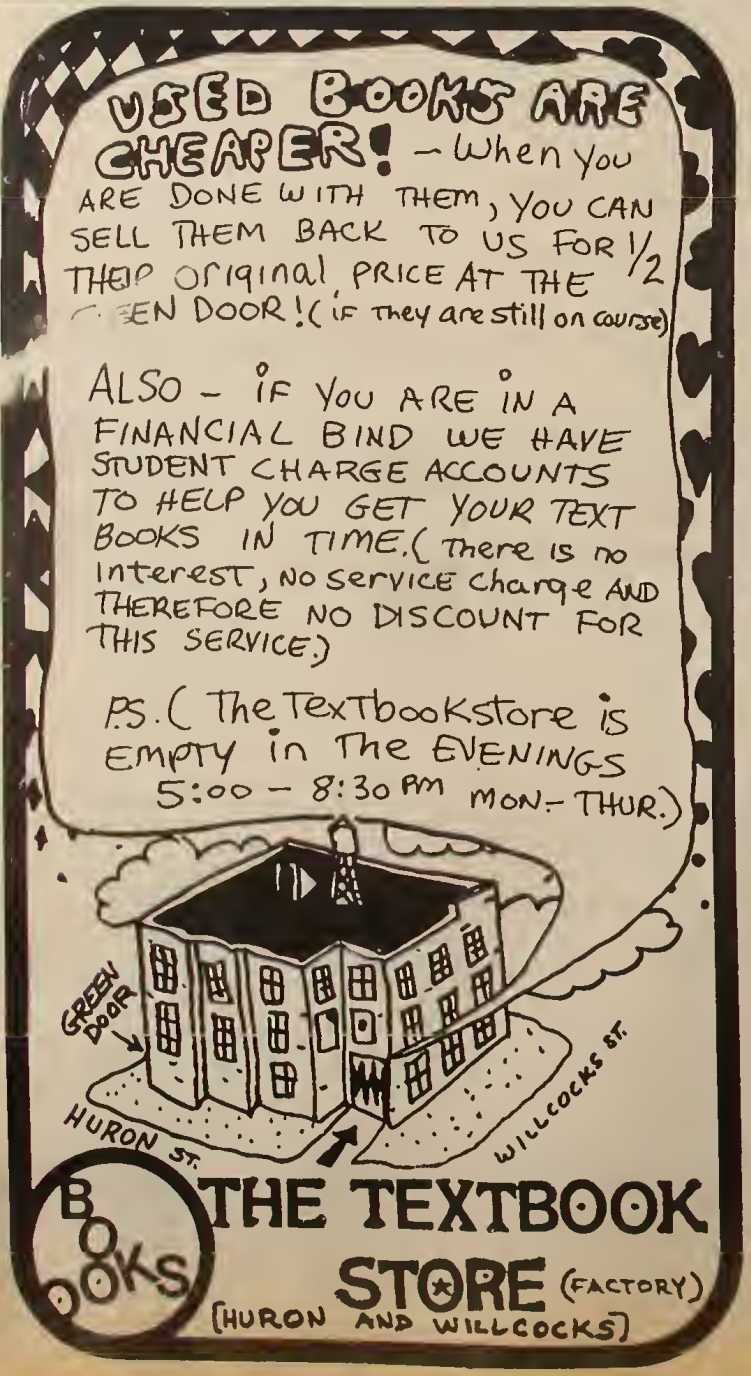 USED BOOKS ARE
CHEAPER! - When you
ARE DONE WITH THEM, YOU CAN
SELL THEM BACK TO US FOR 1/2
THEIR original PRICE AT THE
EEN DOOR! (IF They are still on course)
ALSO - IF YOU ARE IN A
FINANCIAL BIND WE HAVE
STUDENT CHARGE ACCOUNTS
TO HELP YOU GET YOUR TEXT
BOOKS IN TIME. (There is no
Interest, NO SERVICE Charge AND
THEREFORE NO DISCOUNT FOR
THIS SERVICE.)
P.S. (The Textbookstore is
EMPTY in The EVENINGS
5:00 - 8:30 PM MON- THUR.)
GREEN
DOOR
HURON ST.
WILLCOCKS ST.
BOOKS
THE TEXTBOOK
STORE (FACTORY)
[HURON AND WILLCOCKS]